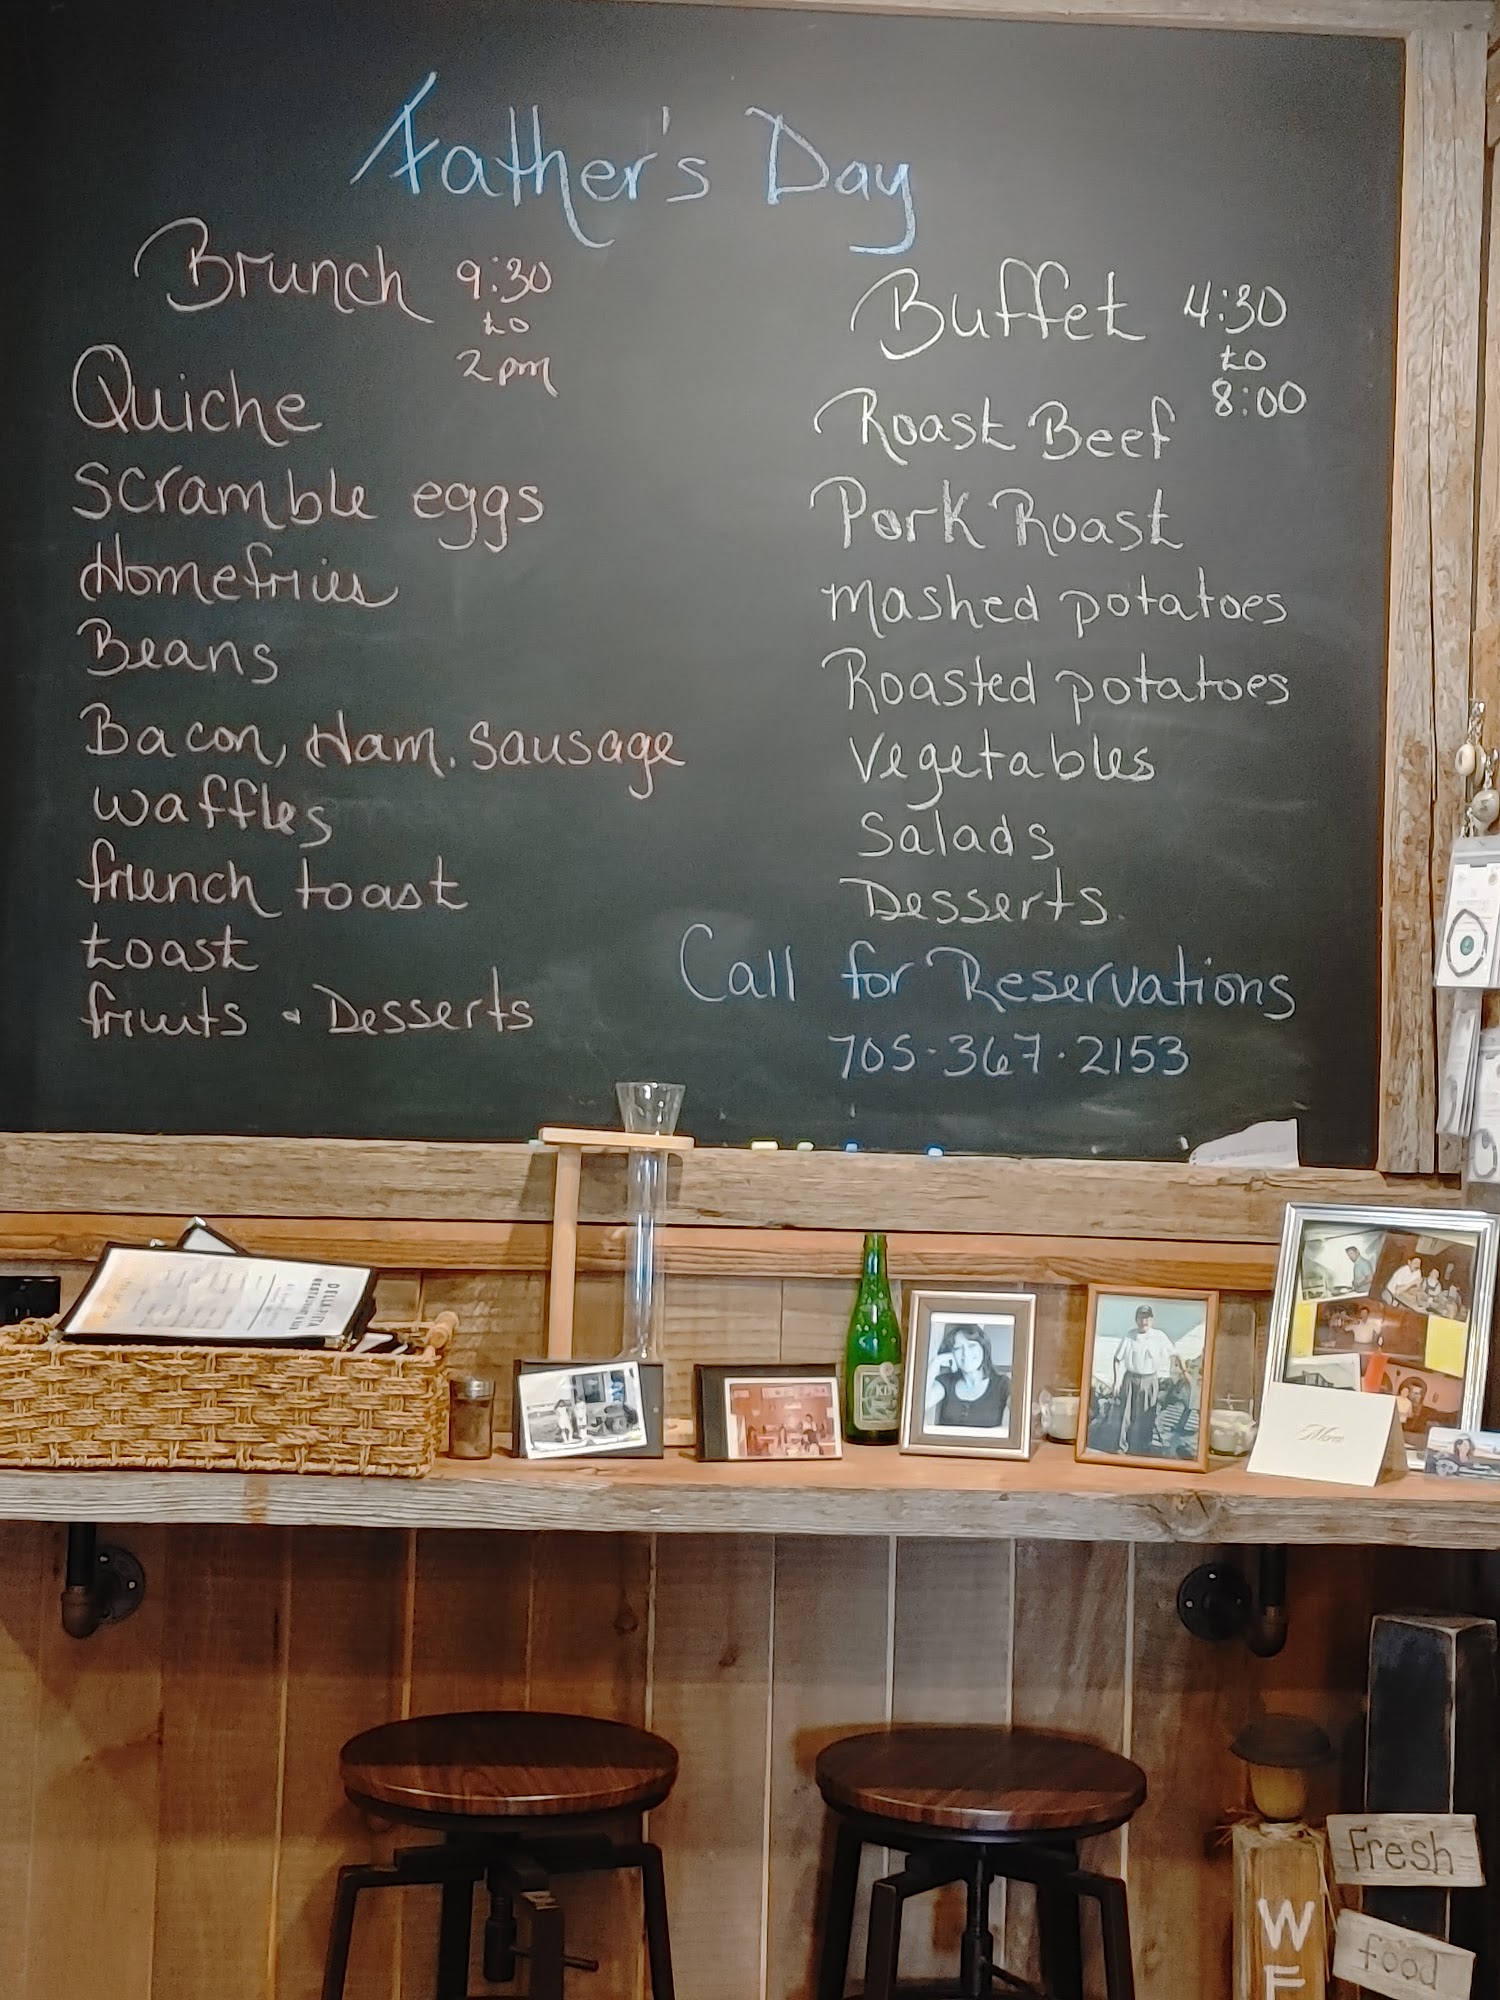 Father's Day
Brunch 9:30
to
2pm
Quiche
scramble eggs
Homefries
Beans
Bacon, Ham. Sausage
waffles
french toast
toast
fruits & Desserts
Buffet 4:30
to
8:00
Roast Beef
Pork Roast
mashed potatoes
Roasted potatoes
Vegetables
Salads
Desserts.
Call for Reservations
705-367-2153
DELLA VITA
RESTAURANT
Fresh
food
W